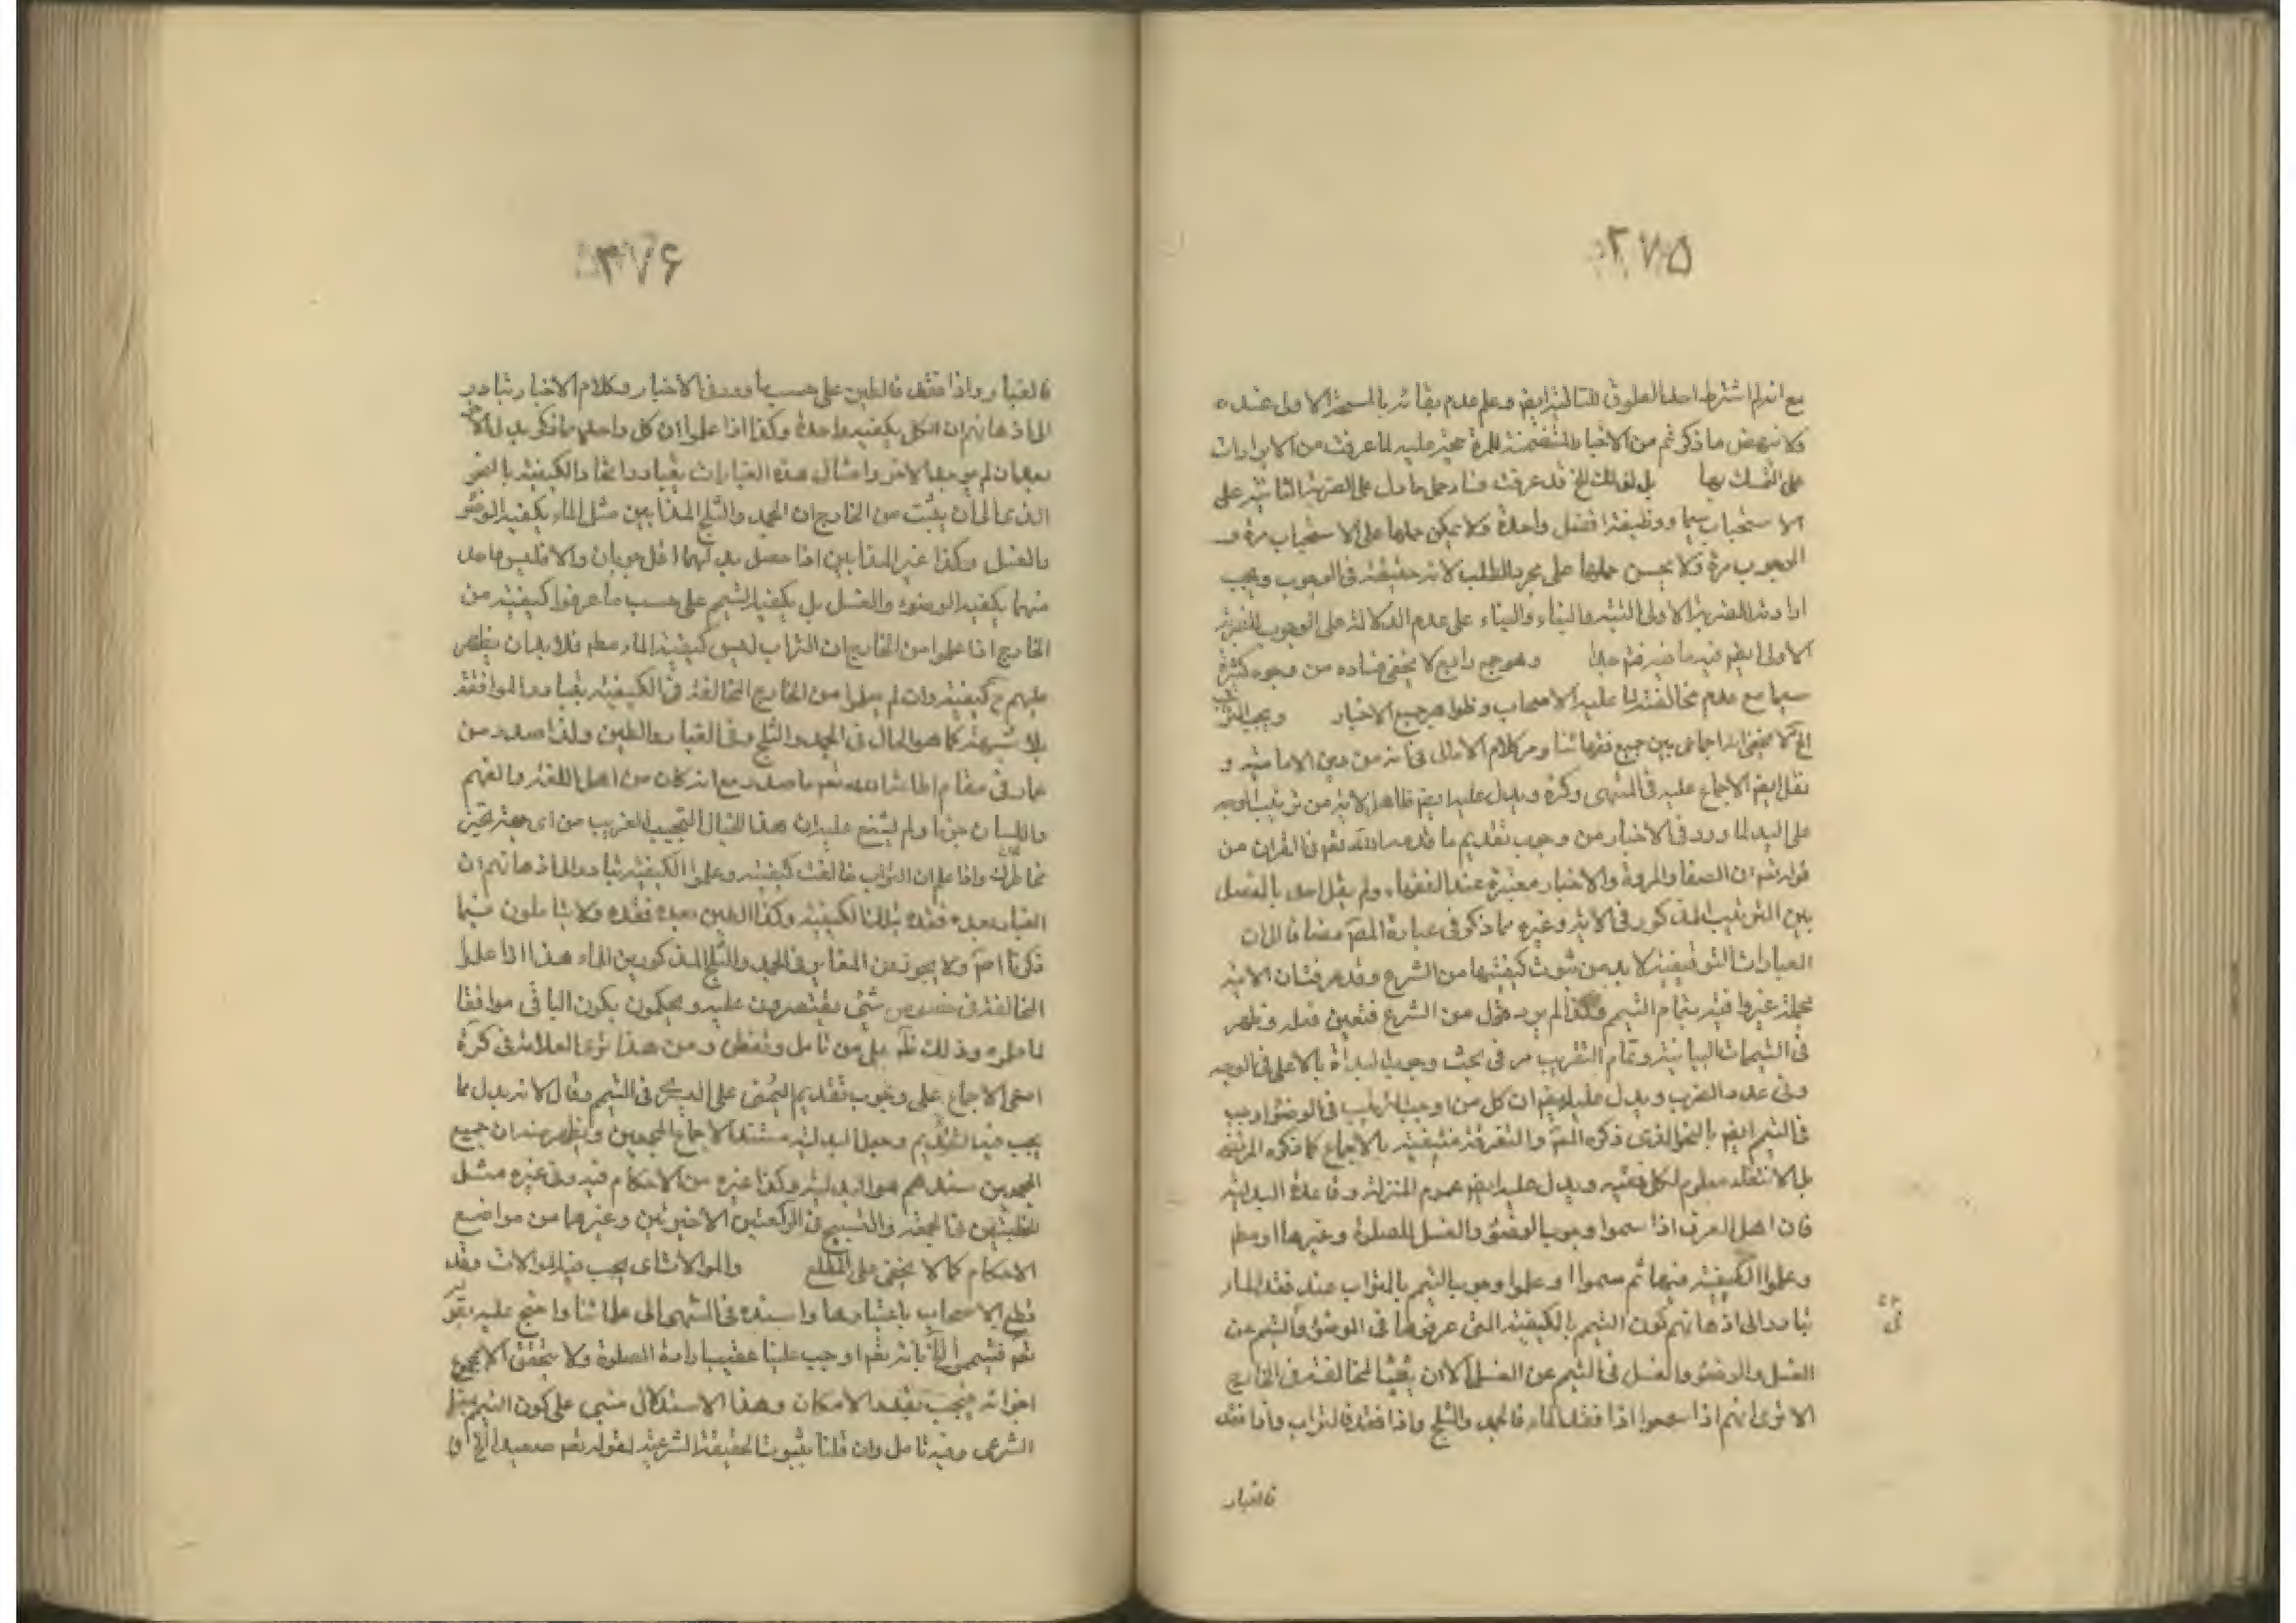 ۲۷۵
مع انه لم اشترط احد العلوق للثانية ايضا وعلم عدم بقائه بالمسحة الاولى عنده
فلا ينهض ما ذكرتم من الاخبار المتضمنة للمرة حجة عليه لما عرفت من الايرادات
على التمسك بها بل لذلك الخ قد عرفت فساد حمل ما دل على الضربة الثانية على
الاستحباب سيما ووظيفة افضل واحدة فلا يمكن حملها على الاستحباب مرة و
الوجوب مرة ولا يحسن حملها على مجرد الطلب لانه حقيقة في الوجوب ويجب
الاولى ايضا فيه ما ضربته وهو جمع رابع لا يخفى فساده من وجوه كثيرة
سيما مع عدم مخالفة لما عليه الاصحاب وظواهر جميع الاخبار ويجب
الخ لا يخفى انه اجماعي بين جميع فقهائنا ومر كلام الامالي في انه من دين الامامية و
نقل ايضا الاجماع عليه في المنتهى وكرة ويدل عليه ايضا ظاهر الاية من ترتيب الوجه
على اليد لما ورد في الاخبار من وجوب تقديم ما قدمه الله تعم في القران من
قوله تعم ان الصفا والمروة والاخبار معتبرة عند الفقهاء ولم يقل احد بالفصل
بين الترتيب المذكور في الاية وغيره مما ذكر في عبارة المصم مضافا الى ان
العبادات التوقيفية لا بد من ثبوت كيفيتها من الشرع وقد عرفت ان الاية
مجملة غير وافية بتمام التيمم وكذا لم يرد قول من الشرع فتعين فعله وظهر
في التيممات البيانية وتمام التقريب مر في بحث وجوب البدأة بالاعلى في الوجه
وفي عدد الضرب ويدل عليه ايضا ان كل من اوجب الترتيب في الوضوء اوجب
في التيمم ايضا بالنحو الذي ذكره المصم والتفرقة منتفية بالاجماع كما ذكره المرتضى
بل الانتفاء معلوم لكل فقيه ويدل عليه ايضا عموم المنزلة وقاعدة البدلية
فان اهل العرف اذا سمعوا وجوب الوضوء والغسل للصلوة وغيرها او مطم
وعلموا الكيفية فيها ثم سمعوا او علموا وجوب التيمم بالتراب عند فقد الماء
تبادر الى اذهانهم كون التيمم بالكيفية التي عرفوها في الوضوء والتيمم عن
الغسل والوضوء والغسل في التيمم عن الغسل الا ان يثبت المخالفة في الخارج
الا ترى انهم اذا سمعوا اذا فقد الماء فالجمد والثلج واذا فقد فالتراب واذا فقد
فالغبار
۳۷۶
فالغبار واذا فقد فالطين على حسب ما ورد في الاخبار وكلام الاخيار تبادر
الى اذهانهم ان الكل بكيفية واحدة وكذا اذا علموا ان كل واحد مما ذكر بدل الاخر
بعد ان لم يوجد الاخر وامثال هذه العبارات يتبادر اتحاد الكيفية بالنحو
الذي الى ان يثبت من الخارج ان الجمد والثلج المذابين مثل الماء بكيفية الوضوء
والغسل وكذا غير المذابين اذا حصل بدلكهما اقل جريان والا فليس واحد
منهما بكيفية الوضوء والغسل بل بكيفية التيمم على حسب ما عرفوا كيفيته من
الخارج اذا علموا من الخارج ان التراب ليس كيفية الماء مطم فلا بد ان يظهر
عليهم ح كيفيته وان لم يعلموا من الخارج المخالفة في الكيفية يتبادر الموافقة
بلا شبهة كما هو الحال في الجمد والثلج وفي الغبار والطين ولذا صدر من
عمار في مقام اطاعة الله تعم ما صدر مع انه كان من اهل اللغة والفهم
واللسان جزما ولم يشنع عليه ان هذا الخيال العجيب الغريب من اي جهة
بخاطرك واذا علم ان التراب خالفت كيفيته وعلموا الكيفية تبادر الى اذهانهم ان
الغبار بعده فقده بتلك الكيفية وكذا الطين بعده فقده ولا يتاملون فيما
ذكرنا اصم ولا يجوزون المغايرة في الجمد والثلج المذكورين الماء هذا اذا علموا
المخالفة في خصوص شيء يقتصرون عليه ويحكمون بكون الباقي موافقا
لما علموه وذلك ظم على من تامل وتفطن ومن هذا ترى العلامة في كرة
ادعى الاجماع على وجوب تقديم اليمنى على اليسرى في التيمم وقال لانه بدل مما
يجب فيه التقديم وجعل البدلية مستند الاجماع المجمعين وظهر منه ان جميع
المجمعين سندهم هو البدلية وكذا غيره من الاحكام فيه وفي غيره مثل
الخطبتين في الجمعة والتسبيح في الركعتين الاخيرتين وغيرهما من مواضع
الاحكام كما لا يخفى على المطلع والموالاة اي يجب فيه الموالاة وقد
قطع الاصحاب باعتبارها واسنده في المنتهى الى علمائنا واحتج عليه بقوله
تعم فتيمموا الخ بانه تعم اوجب علينا عقيب ارادة الصلوة ولا يتحقق الا بمجموع
اجزائه فيجب بقدر الامكان وهذا الاستدلال مبني على كون التيمم
الشرعي وفيه تامل وان قلنا بثبوت الحقيقة الشرعية لقوله تعم صعيدا الخ